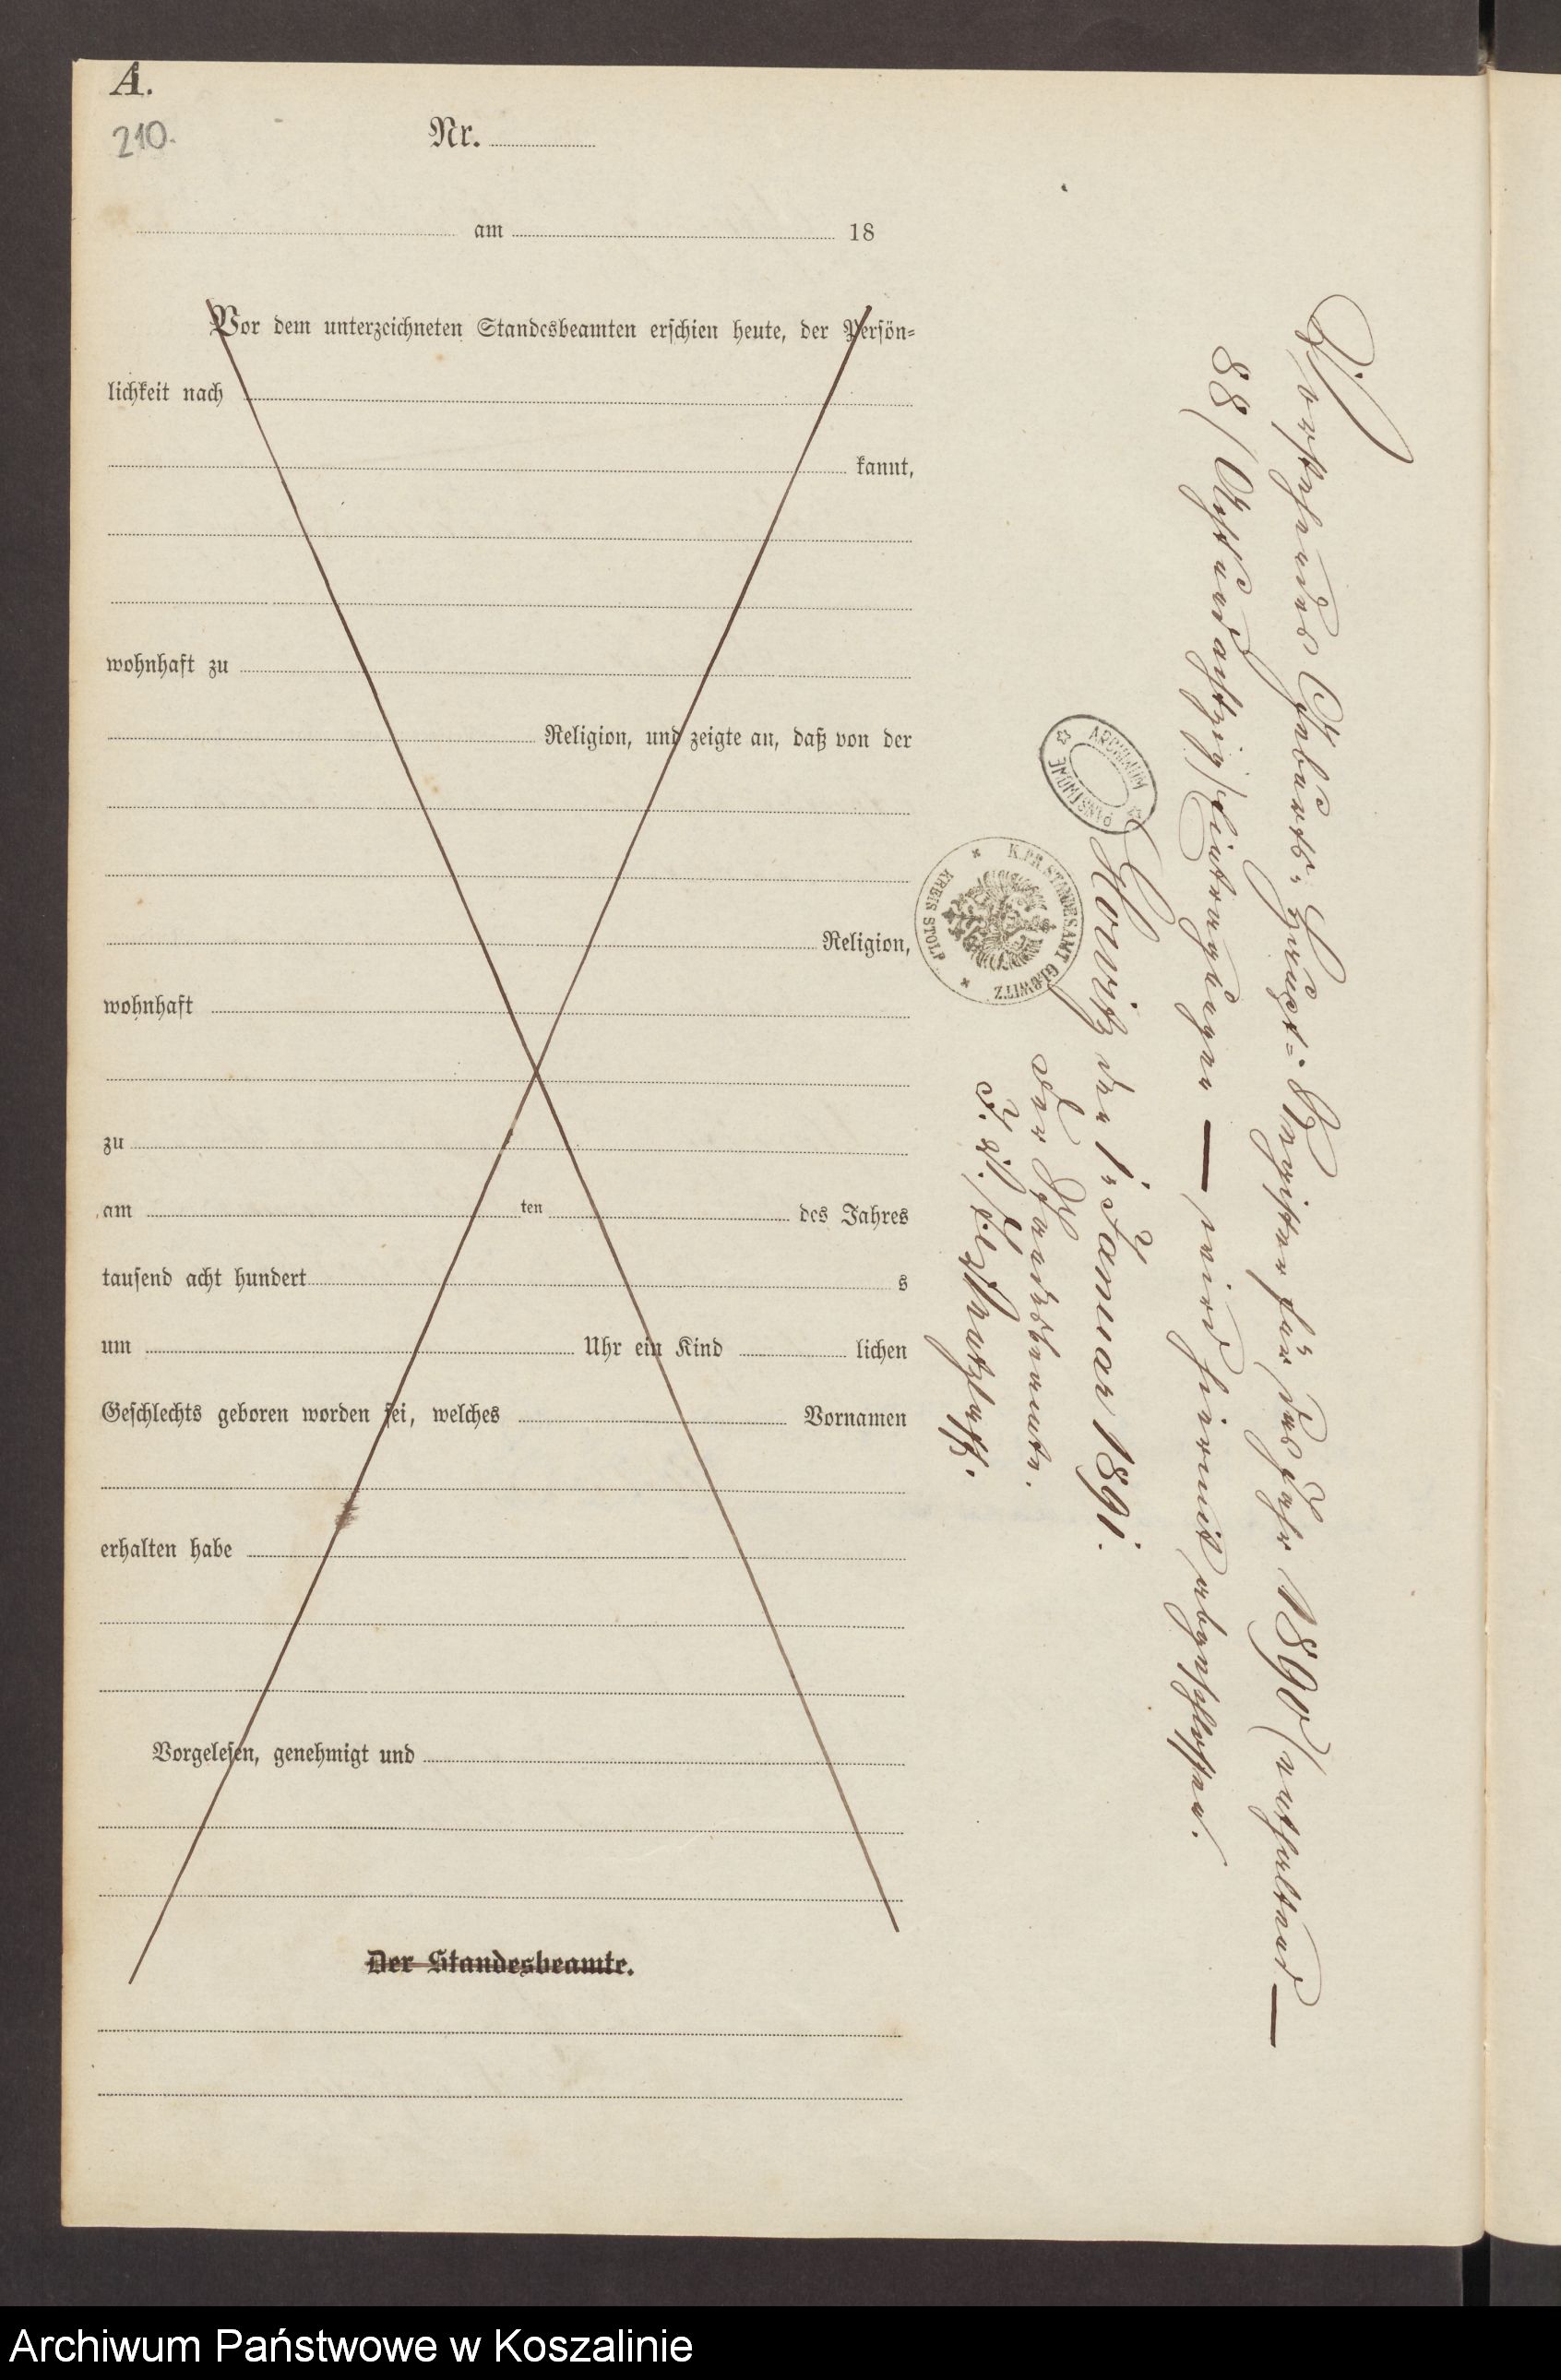 A.
210.
Nr.
am 18
Vor dem unterzeichneten Standesbeamten erschien heute, der Persön-
lichkeit nach
kannt,
wohnhaft zu
Religion, und zeigte an, daß von der
Religion,
wohnhaft
zu
am ten des Jahres
tausend acht hundert s
um Uhr ein Kind lichen
Geschlechts geboren worden sei, welches Vornamen
erhalten habe
Vorgelesen, genehmigt und
Der Standesbeamte.
Vorstehendes Geburts-Haupt-Register für das Jahr 1890 enthaltend —
88 (Achtundachtzig) Eintragungen — wird hiermit abgeschlossen.
den 1. Januar 1891.
Der Standesbeamte.
ARCHIWUM PAŃSTWOWE
K. PR. STANDESAMT
KREIS STOLP
Archiwum Państwowe w Koszalinie